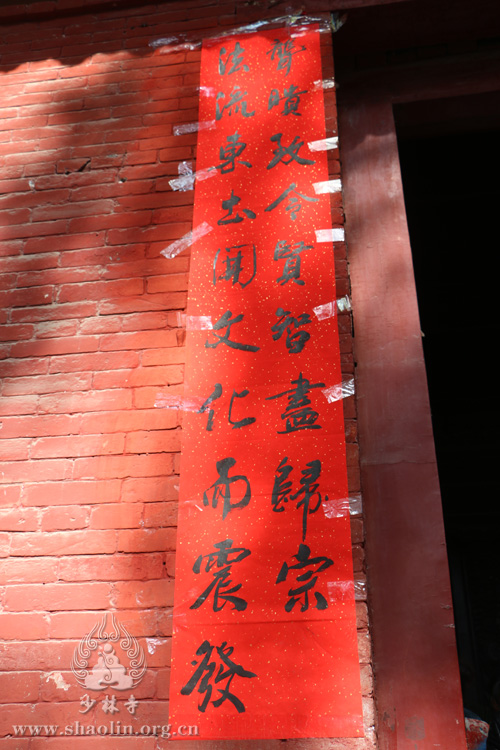 法流東土開文化而震發
聾聵致令賢智盡歸宗
少林寺
www.shaolin.org.cn